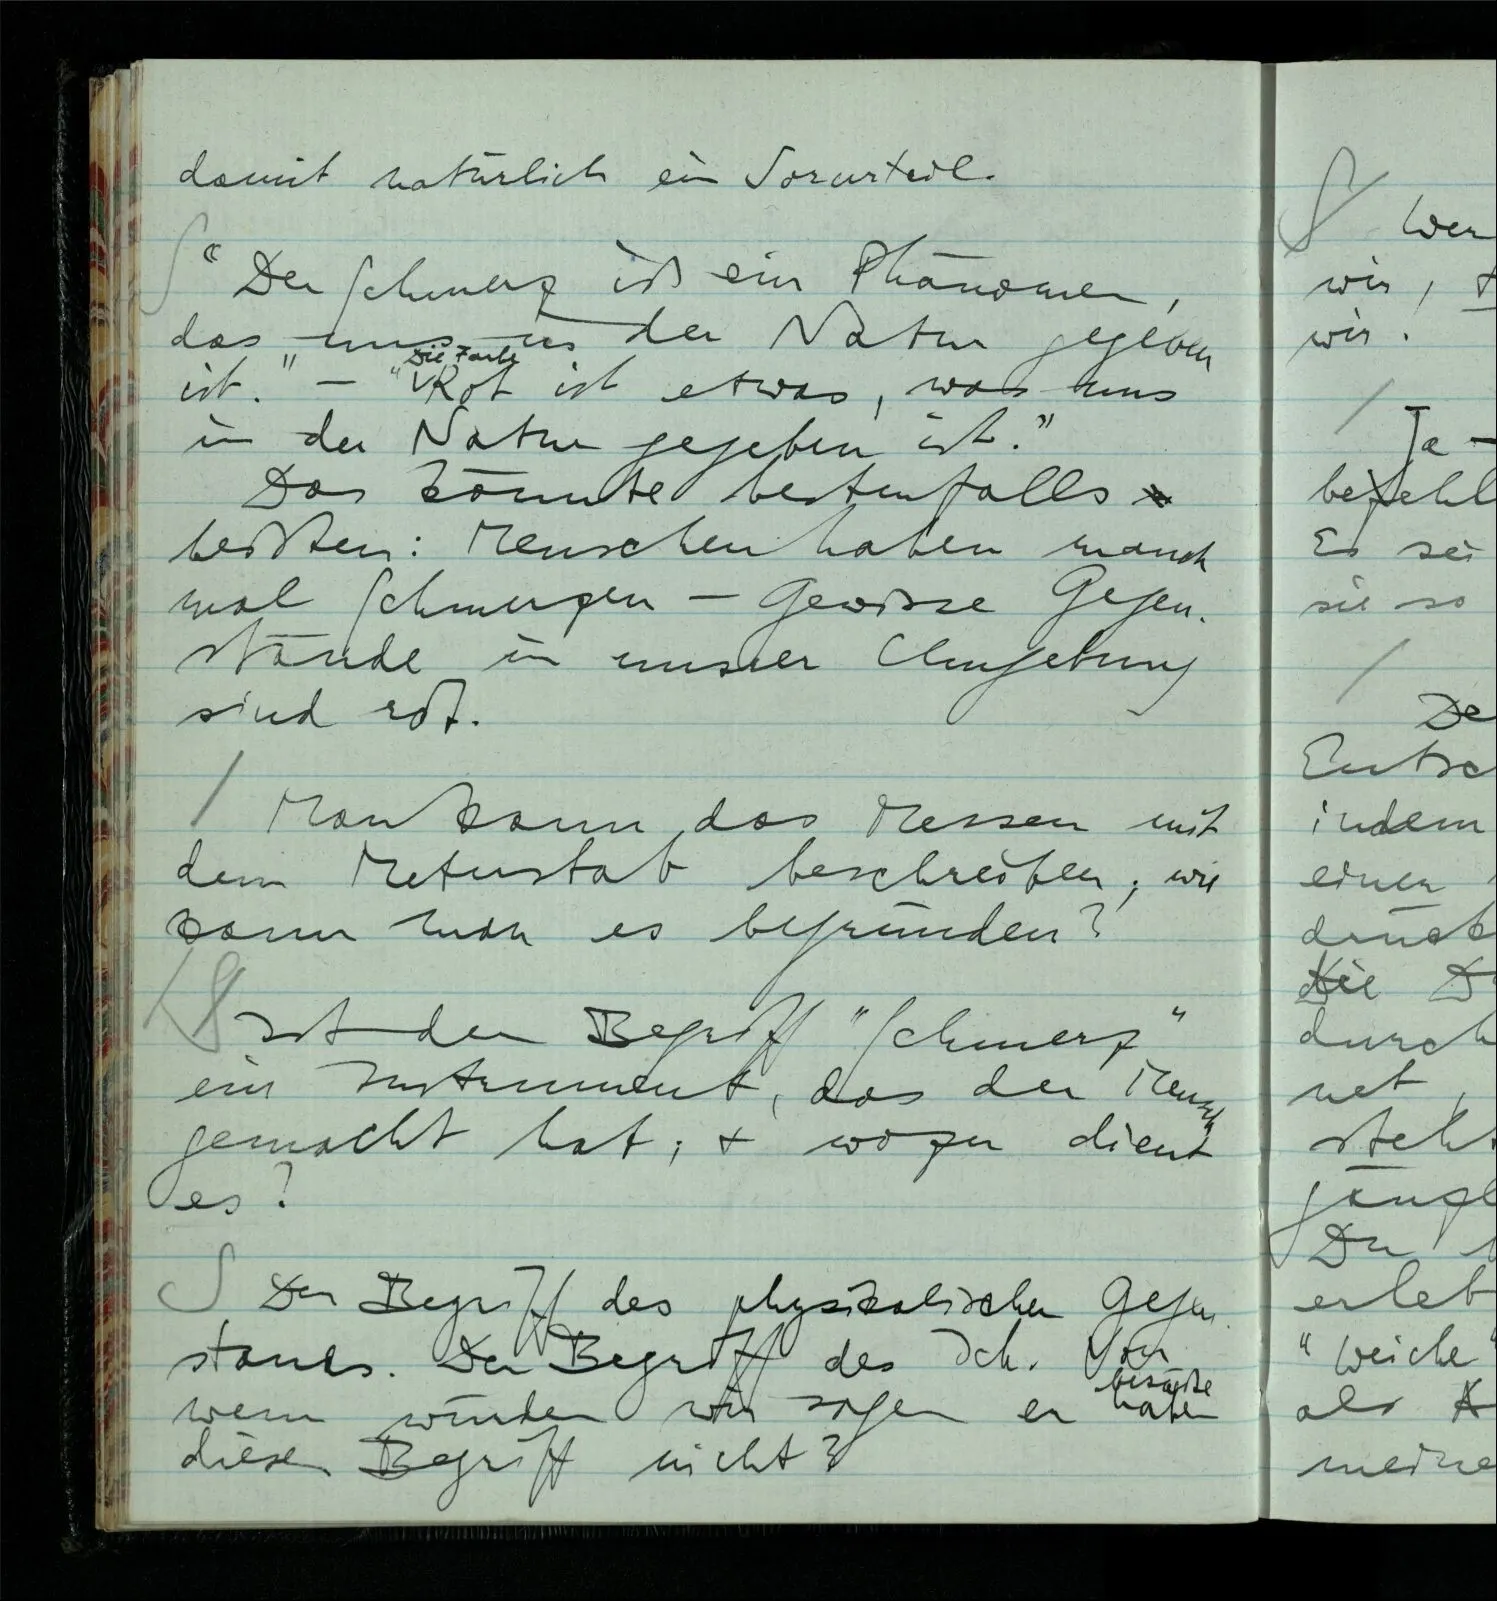 damit natürlich ein Vorurteil.
"Der Schmerz ist ein Phänomen,
das uns in der Natur gegeben
ist." – "Die Farbe Rot ist etwas, was uns
in der Natur gegeben ist."
Das könnte bestenfalls
heißen: Menschen haben manch
mal Schmerzen – Gewisse Gegen-
stände in unsrer Umgebung
sind rot.
Man kann das Messen mit
dem Meterstab beschreiben; wie
kann man es begründen?
Ist der Begriff "Schmerz"
ein Instrument, das der Mensch
gemacht hat; + wozu dient
es?
Der Begriff des physikalischen Gegen-
stands. Der Begriff des Ich. Von
wem würden wir sagen er besäße haben
diesen Begriff nicht?
Wen
wir,
wir.
Ja –
befehl
Es sei
sie so
De
Entsc
indem
einen
drück
Die
durch
net,
steht
gängl
Du
erleb
"Weiche"
als
meine